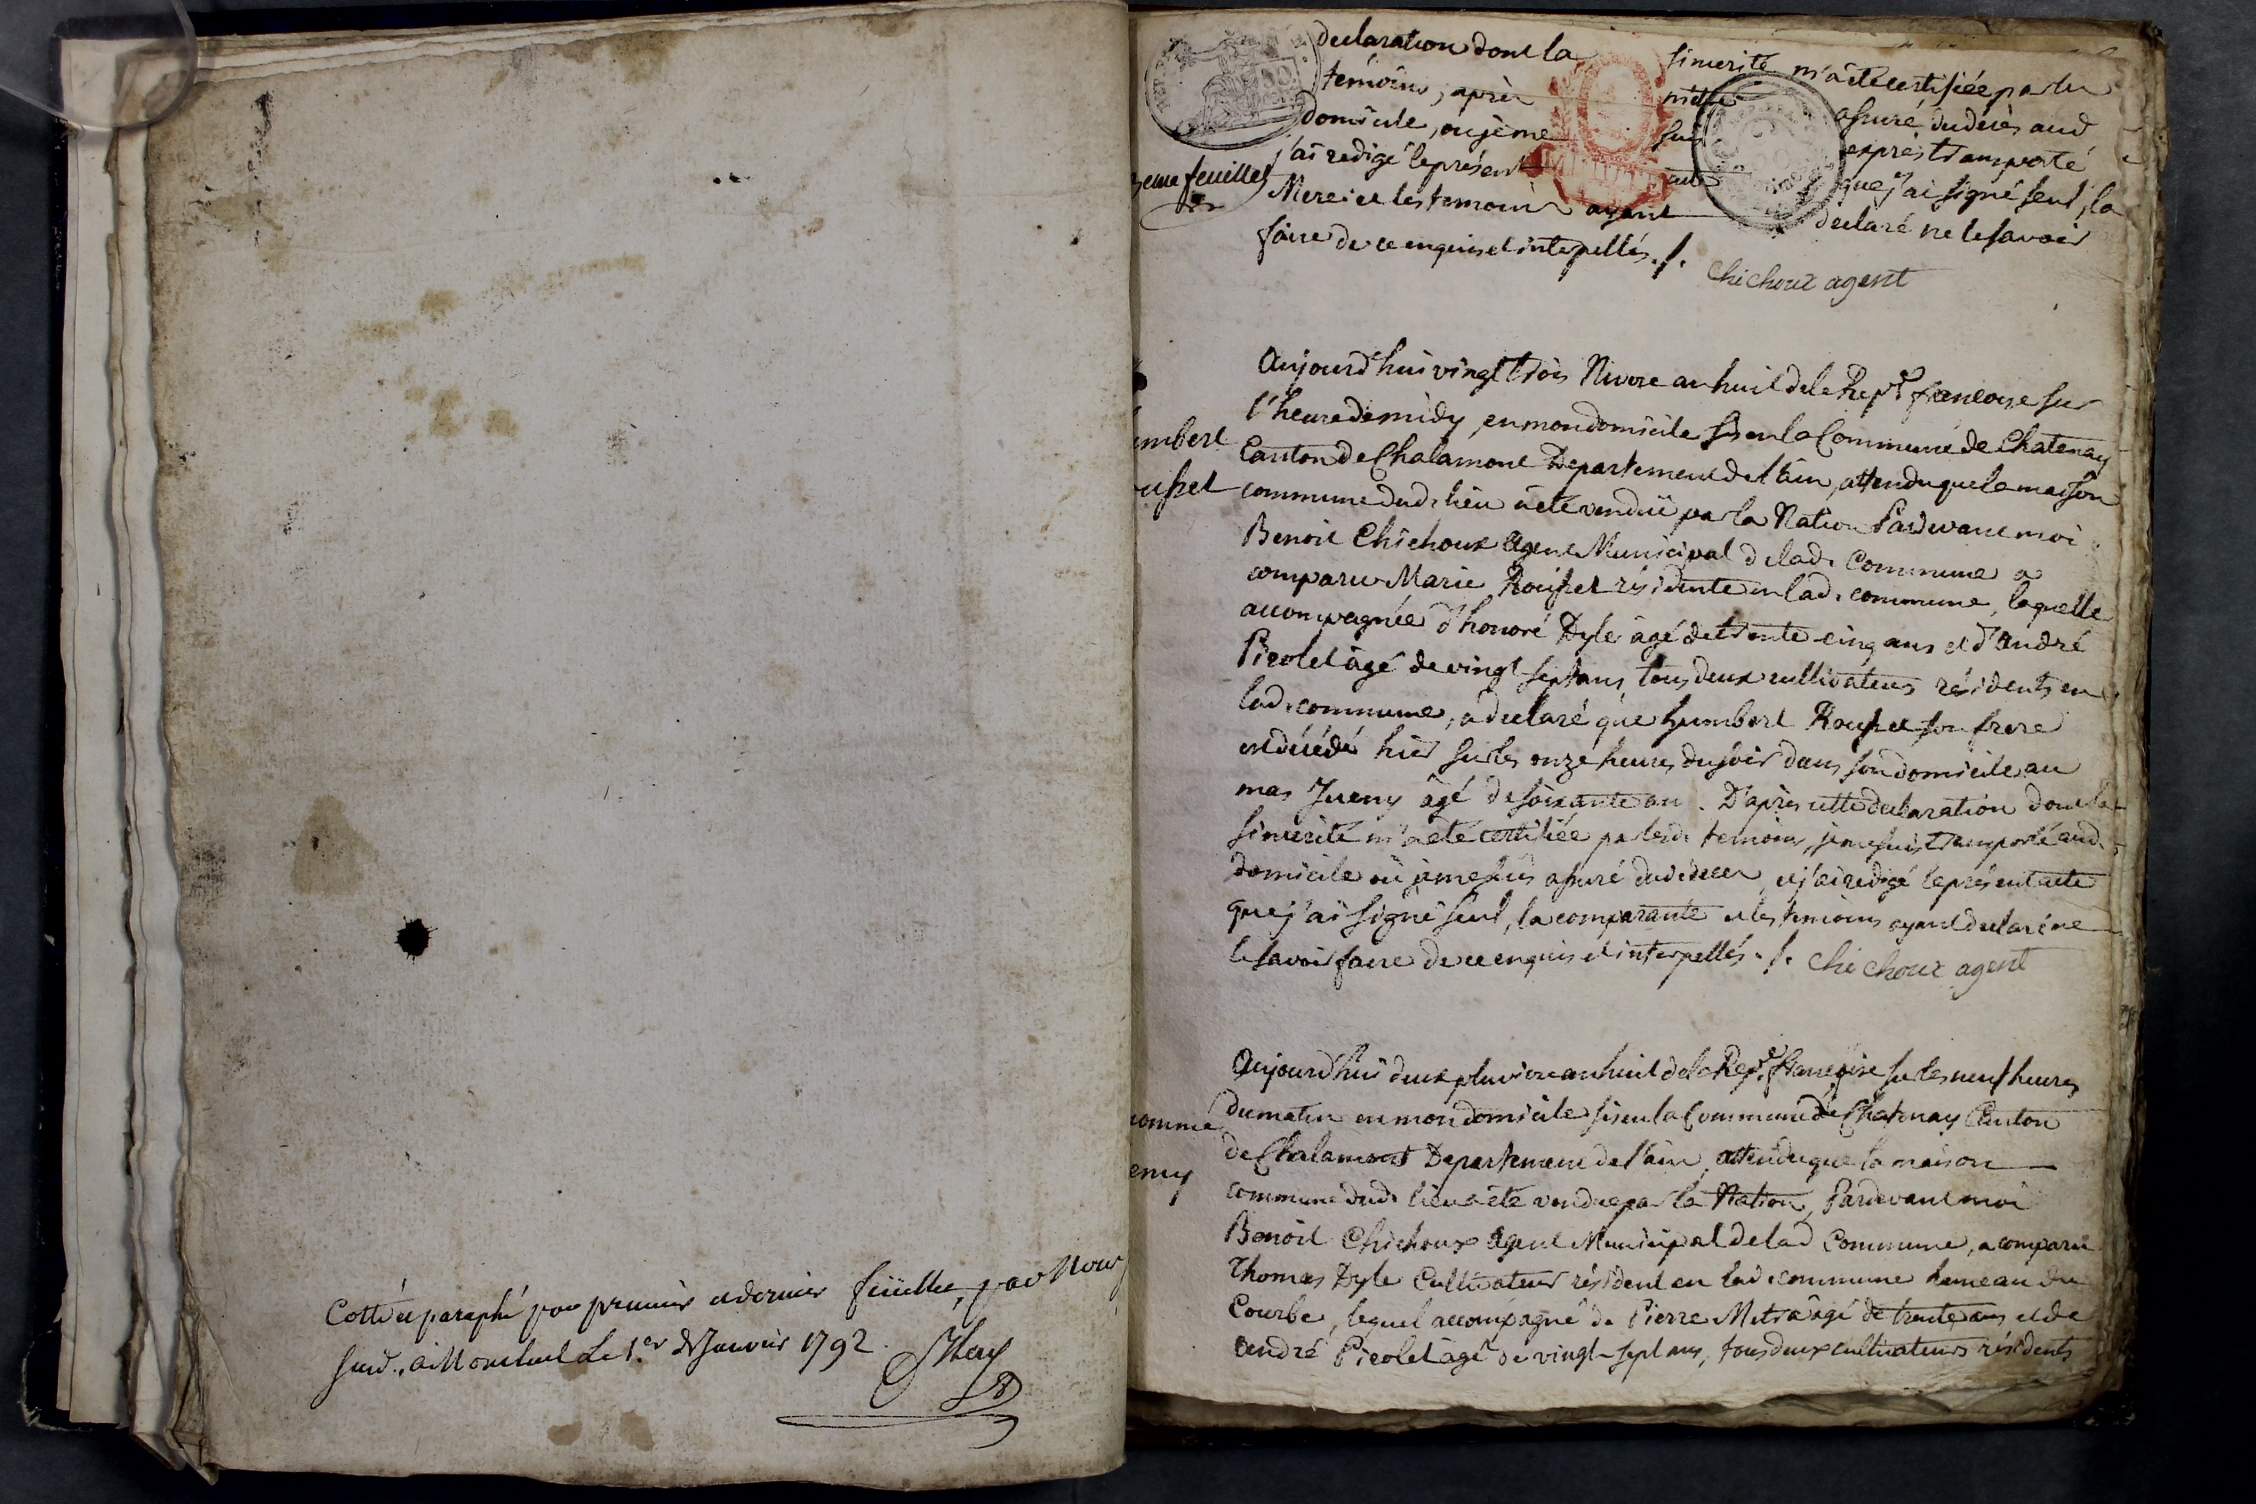 Cotté et paraphé par premier et dernier feuillet, par Nous
jud. à Montluel Le 1.er Janvier 1792.
declaration dont la sincerité m'a été certifiée par les
temoins, après m'être assuré du decès aud
domicile, ou je me suis exprès transporté
j'ai redigé le présent acte que j'ai signé seul, la
Mere et les temoins ayant declaré ne le savoir
faire de ce enquis et interpellés ./.
Chichoux agent
eme feuillet
umbert
ousset
Aujourd'hui vingt trois Nivose an huit de la Rep.e francoise sur
l'heure de midy, en mon domicile sis en la Commune de Chatenay
Canton de Chalamont Departement de l'ain, attendu que la maison
commune dud. lieu a été venduë par la Nation Pardevant moi
Benoit Chichoux Agent Municipal de lad. Commune a
comparu Marie Rousset résidente en lad. commune, laquelle
accompagnée d'honoré Dyle âgé de trente cinq ans et d'André
Picolet âgé de vingt sept ans, tous deux cultivateurs résidents en
lad. commune, a declaré que humbert Rousset son frere
est décédé hier sur les onze heures du soir dans son domicile au
mas Jueny âgé de soixante an. D'après cette declaration dont la
sincerité m'a été certifiée par lesd. temoins, je me suis transporté aud.
domicile où je me suis assuré dud. decès, et j'ai redigé le présent acte
que j'ai signé seul, la comparante et les temoins ayant declaré ne
le savoir faire de ce enquis et interpellés ./. Chichoux agent
omme
eny
Aujourd'hui deux pluviose an huit de la Rep.e francoise sur les neuf heures
du matin en mon domicile sis en la Commune de Chatenay Canton
de Chalamont Departement de l'ain, attendu que la maison
commune dud. lieu a été vendue par la Nation, Pardevant moi
Benoit Chichoux Agent Municipal de lad Commune, a comparu
Thomas Dyle Cultivateur résident en lad. commune hameau du
Courbe, lequel accompagné de Pierre Mitra âgé de trente ans et de
André Picolet âgé de vingt-sept ans, tous deux cultivateurs résidents